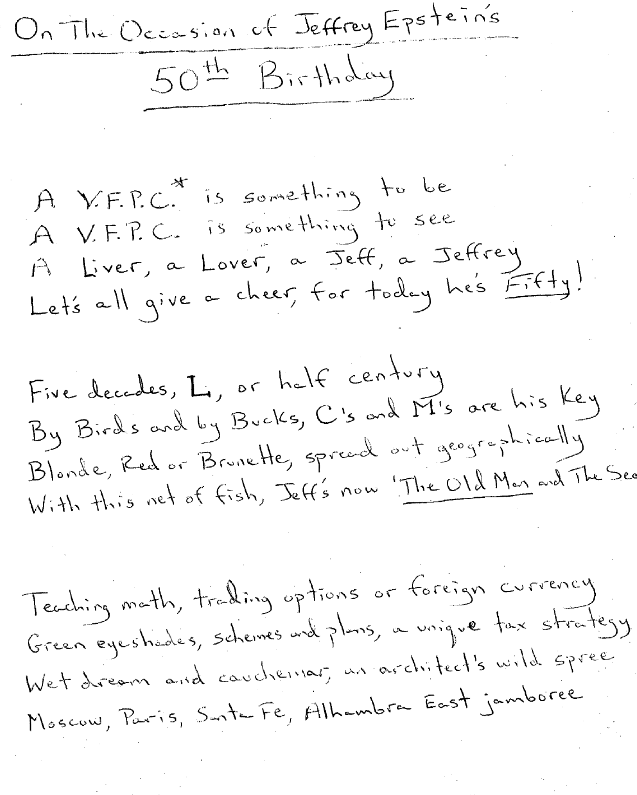 On The Occasion of Jeffrey Epstein's
50th Birthday
A V.F.P.C.* is something to be
A V.F.P.C. is something to see
A Liver, a Lover, a Jeff, a Jeffrey
Let's all give a cheer, for today he's Fifty!
Five decades, L, or half century
By Birds and by Bucks, C's and M's are his Key
Blonde, Red or Brunette, spread out geographically
With this net of fish, Jeff's now 'The Old Man and The Sea
Teaching math, trading options or foreign currency
Green eyeshades, schemes and plans, a unique tax strategy
Wet dream and cauchemar, an architect's wild spree
Moscow, Paris, Santa Fe, Alhambra East jamboree